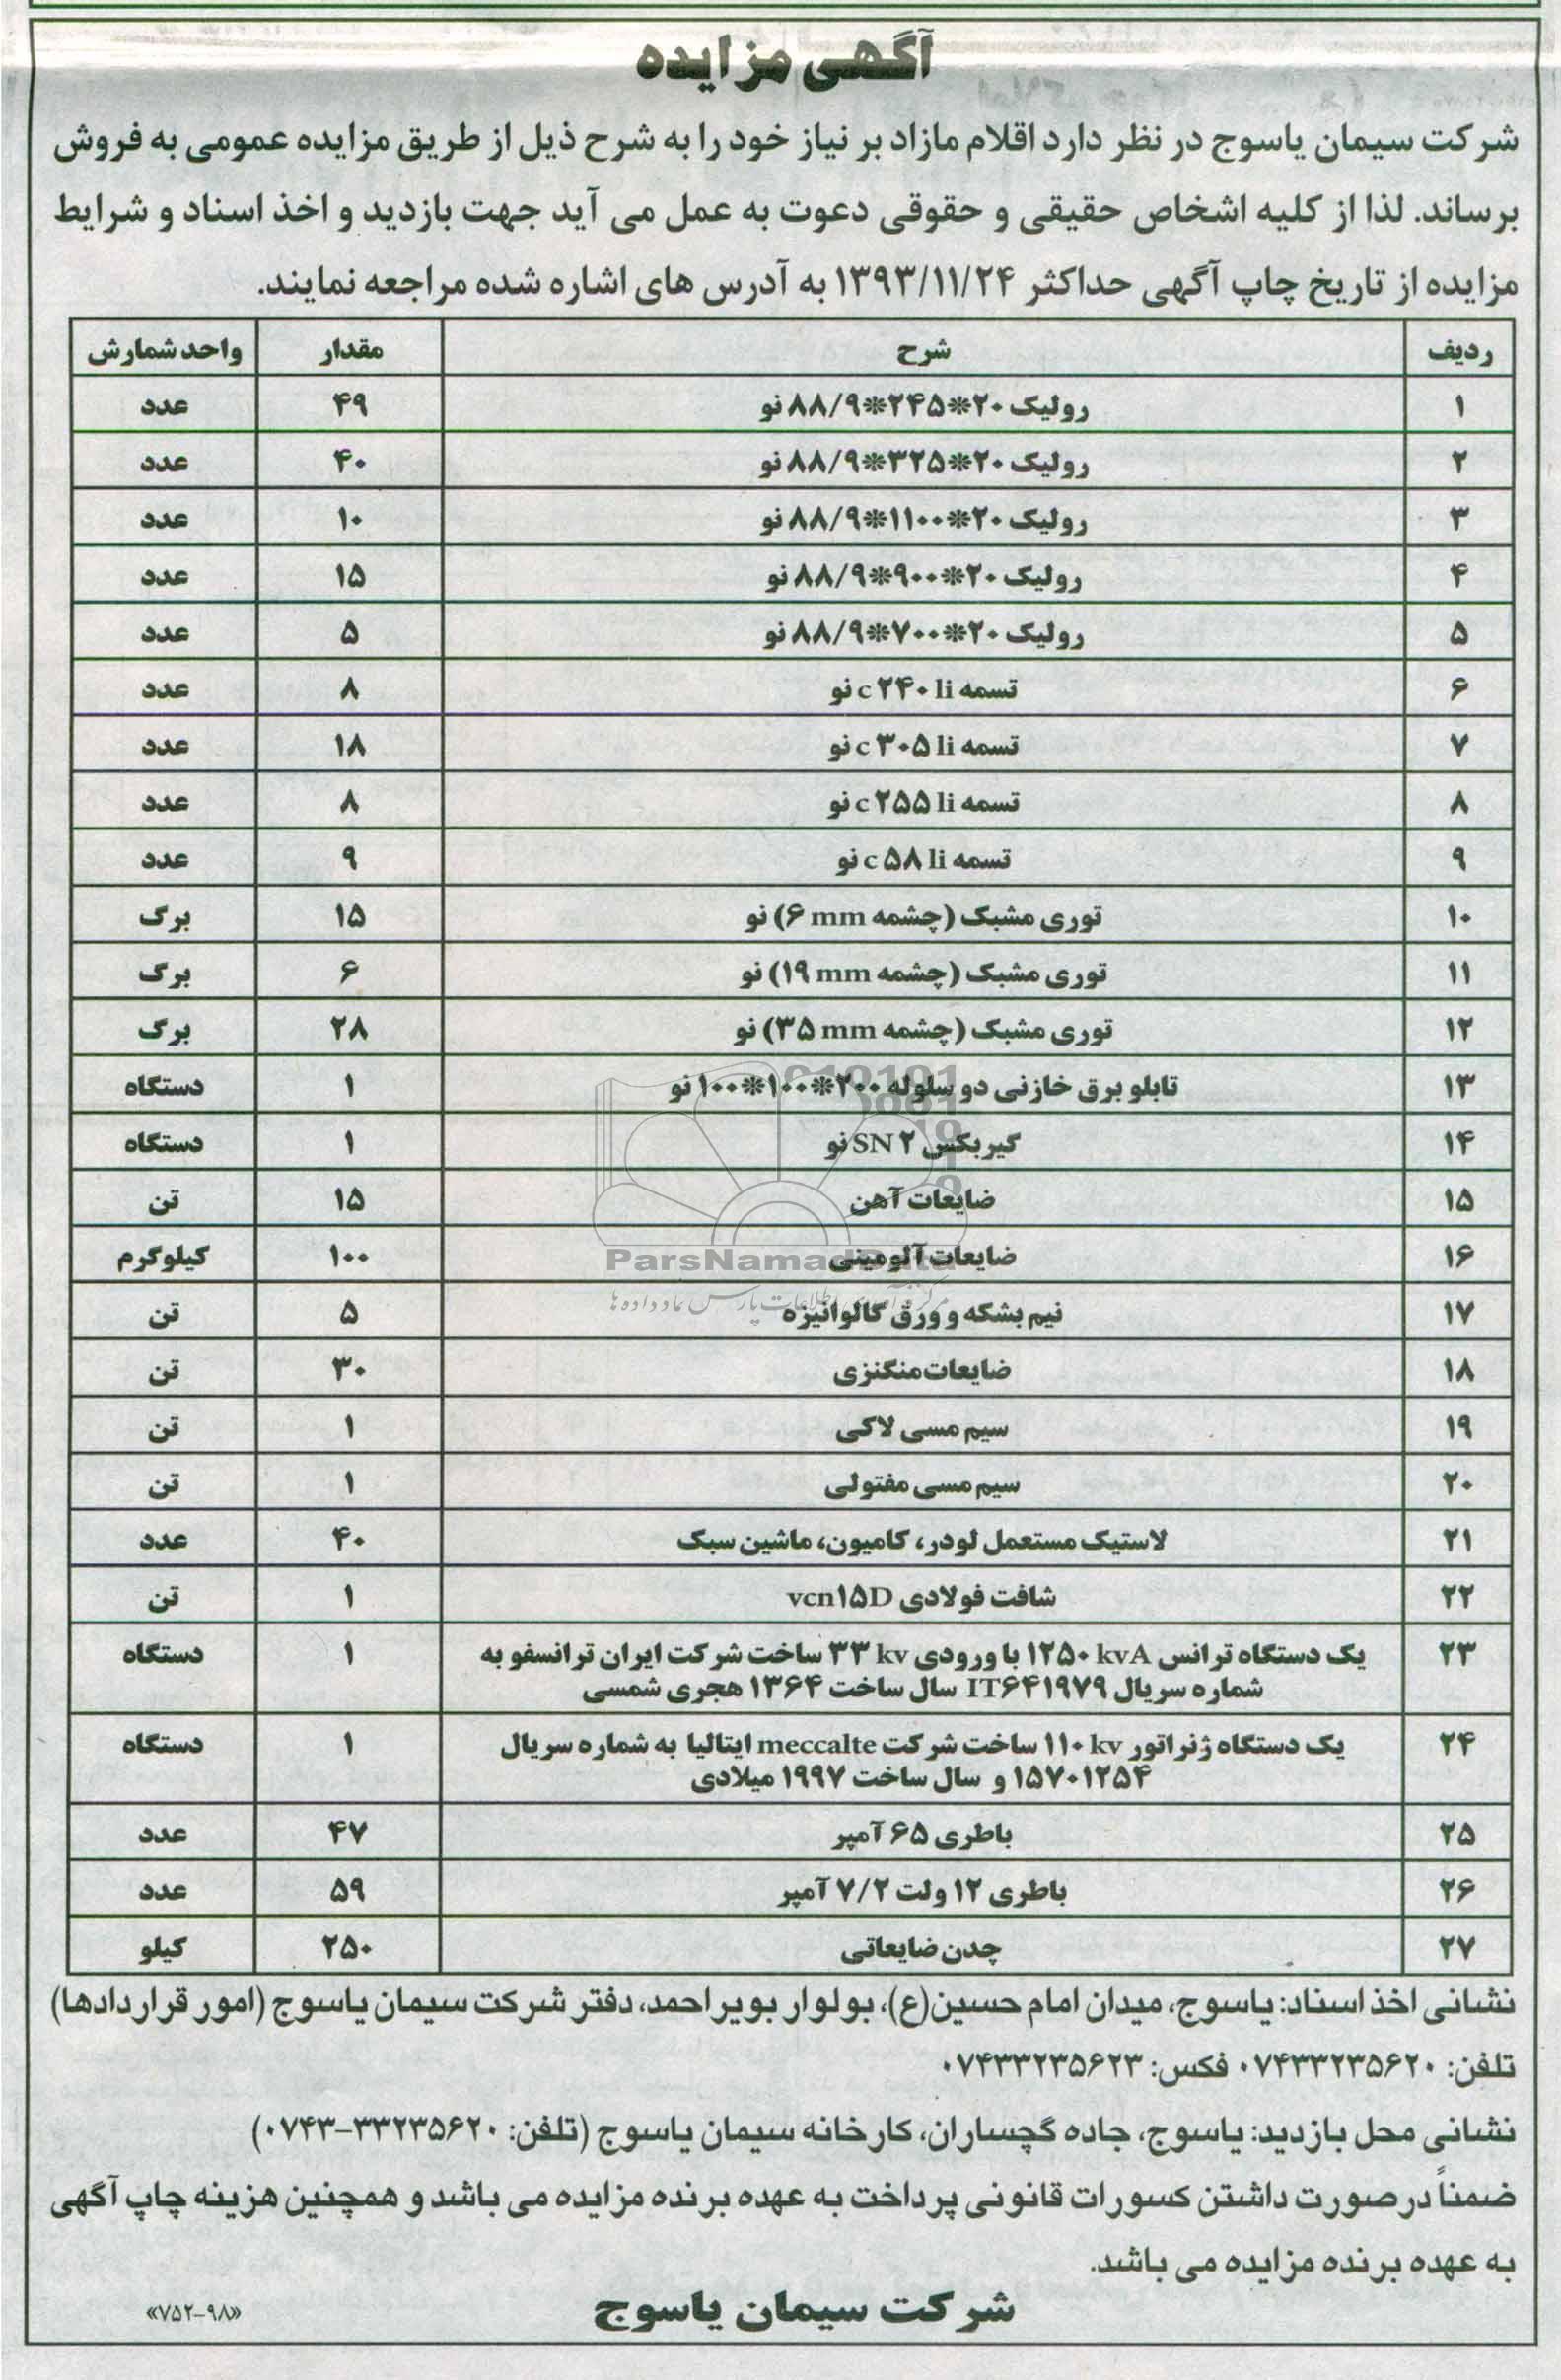 آگهی مزایده
شرکت سیمان یاسوج در نظر دارد اقلام مازاد بر نیاز خود را به شرح ذیل از طریق مزایده عمومی به فروش
برساند. لذا از کلیه اشخاص حقیقی و حقوقی دعوت به عمل می آید جهت بازدید و اخذ اسناد و شرایط
مزایده از تاریخ چاپ آگهی حداکثر ۱۳۹۳/۱۱/۲۴ به آدرس های اشاره شده مراجعه نمایند.
ردیف شرح مقدار واحد شمارش
۱ رولیک ۲۰*۲۴۵*۸۸/۹ نو ۴۹ عدد
۲ رولیک ۲۰*۳۲۵*۸۸/۹ نو ۴۰ عدد
۳ رولیک ۲۰*۱۱۰۰*۸۸/۹ نو ۱۰ عدد
۴ رولیک ۲۰*۹۰۰*۸۸/۹ نو ۱۵ عدد
۵ رولیک ۲۰*۷۰۰*۸۸/۹ نو ۵ عدد
۶ تسمه c ۲۴۰ li نو ۸ عدد
۷ تسمه c ۳۰۵ li نو ۱۸ عدد
۸ تسمه c ۲۵۵ li نو ۸ عدد
۹ تسمه c ۵۸ li نو ۹ عدد
۱۰ توری مشبک (چشمه ۶ mm) نو ۱۵ برگ
۱۱ توری مشبک (چشمه ۱۹ mm) نو ۶ برگ
۱۲ توری مشبک (چشمه ۳۵ mm) نو ۲۸ برگ
۱۳ تابلو برق خازنی دو سلوله ۲۰۰*۱۰۰*۱۰۰ نو ۱ دستگاه
۱۴ گیربکس SN ۲ نو ۱ دستگاه
۱۵ ضایعات آهن ۱۵ تن
۱۶ ضایعات آلومینی ۱۰۰ کیلوگرم
ParsNamadData
مرکز فرآوری اطلاعات پارس نماد داده ها
۱۷ نیم بشکه و ورق گالوانیزه ۵ تن
۱۸ ضایعات منگنزی ۳۰ تن
۱۹ سیم مسی لاکی ۱ تن
۲۰ سیم مسی مفتولی ۱ تن
۲۱ لاستیک مستعمل لودر، کامیون، ماشین سبک ۴۰ عدد
۲۲ شافت فولادی vcn۱۵D ۱ تن
۲۳ یک دستگاه ترانس ۱۲۵۰ kvA با ورودی ۳۳ kv ساخت شرکت ایران ترانسفو به ۱ دستگاه
شماره سریال IT۶۴۱۹۷۹ سال ساخت ۱۳۶۴ هجری شمسی
۲۴ یک دستگاه ژنراتور ۱۱۰ kv ساخت شرکت meccalte ایتالیا به شماره سریال ۱ دستگاه
۱۵۷۰۱۲۵۴ و سال ساخت ۱۹۹۷ میلادی
۲۵ باطری ۶۵ آمپر ۴۷ عدد
۲۶ باطری ۱۲ ولت ۷/۲ آمپر ۵۹ عدد
۲۷ چدن ضایعاتی ۲۵۰ کیلو
نشانی اخذ اسناد: یاسوج، میدان امام حسین(ع)، بولوار بویراحمد، دفتر شرکت سیمان یاسوج (امور قراردادها)
تلفن: ۰۷۴۳۳۲۳۵۶۲۰ فکس: ۰۷۴۳۳۲۳۵۶۲۳
نشانی محل بازدید: یاسوج، جاده گچساران، کارخانه سیمان یاسوج (تلفن: ۳۳۲۳۵۶۲۰-۰۷۴۳)
ضمناً در صورت داشتن کسورات قانونی پرداخت به عهده برنده مزایده می باشد و همچنین هزینه چاپ آگهی
به عهده برنده مزایده می باشد.
شرکت سیمان یاسوج
«۷۵۲-۹۸»